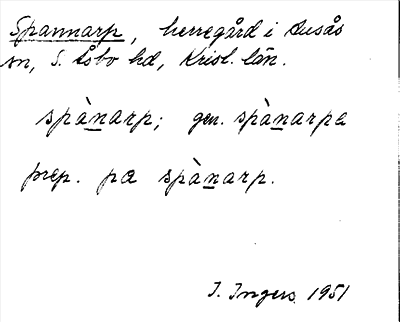 Spannarp, herregård i Ausås
sn, S. Åsbo hd, Krist. län.
spànarp; gen. spànarpa
prep. pæ spànarp.
I. Ingers 1951